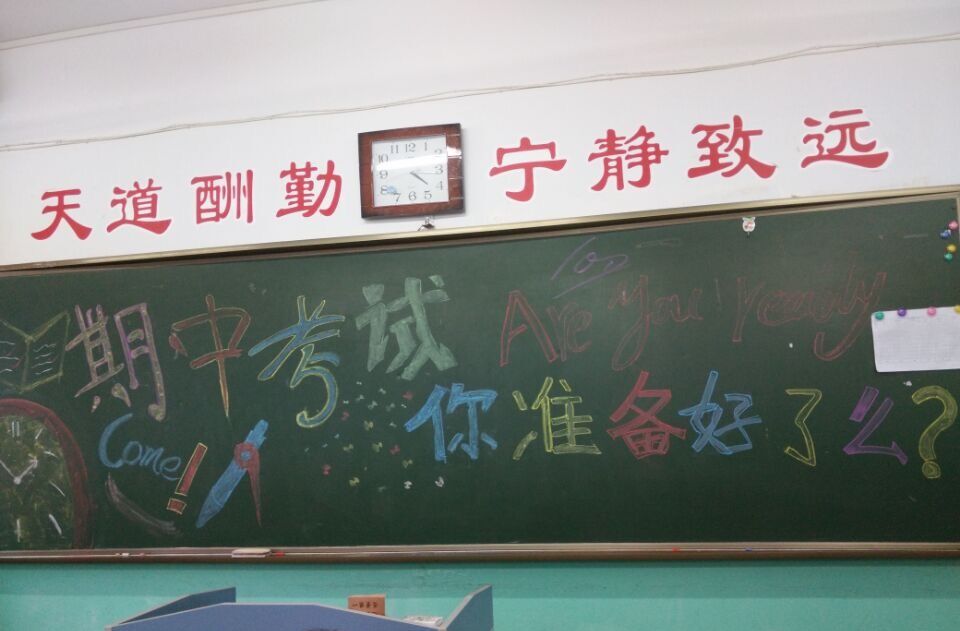 天道酬勤
宁静致远
11 12 1
10 2
9 3
8 4
7 6 5
100
期中考试
Are You ready
Come!
你准备好了么?